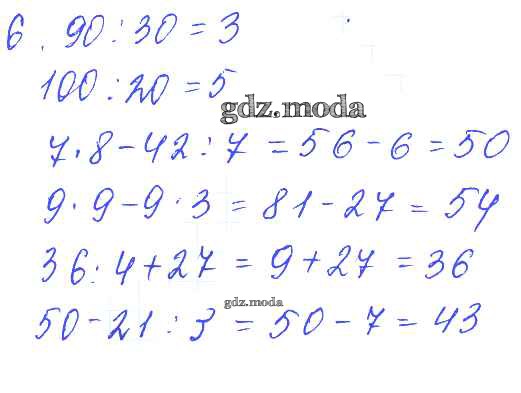 6. 90 : 30 = 3
100 : 20 = 5
gdz.moda
7 · 8 - 42 : 7 = 56 - 6 = 50
9 · 9 - 9 · 3 = 81 - 27 = 54
36 : 4 + 27 = 9 + 27 = 36
gdz.moda
50 - 21 : 3 = 50 - 7 = 43